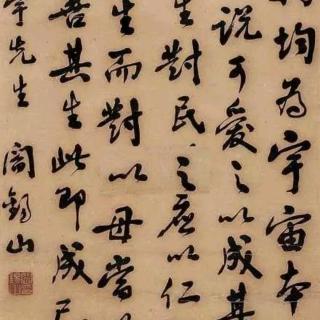 均為宇宙本
説可愛之以成其
生對民之應以仁
生而對以母當
其生此即成
先生
閻錫山